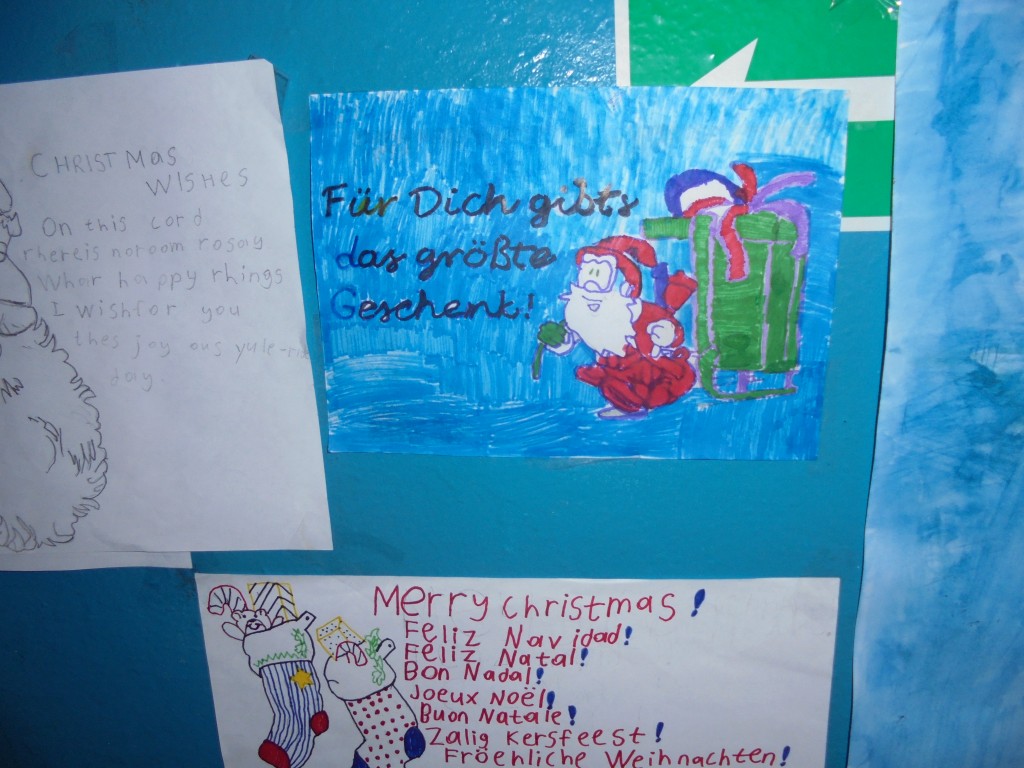 CHRISTMAS
WISHES
On this Lord
rhereis noroom rosay
Whar happy rhings
I wishfor you
thes joy ous yule-
day.
Für Dich gibts
das größte
Geschenk!
Merry christmas!
Feliz Navidad!
Feliz Natal!
Bon Nadal!
Joeux Noël!
Buon Natale!
Zalig Kersfeest!
Fröehliche Weihnachten!